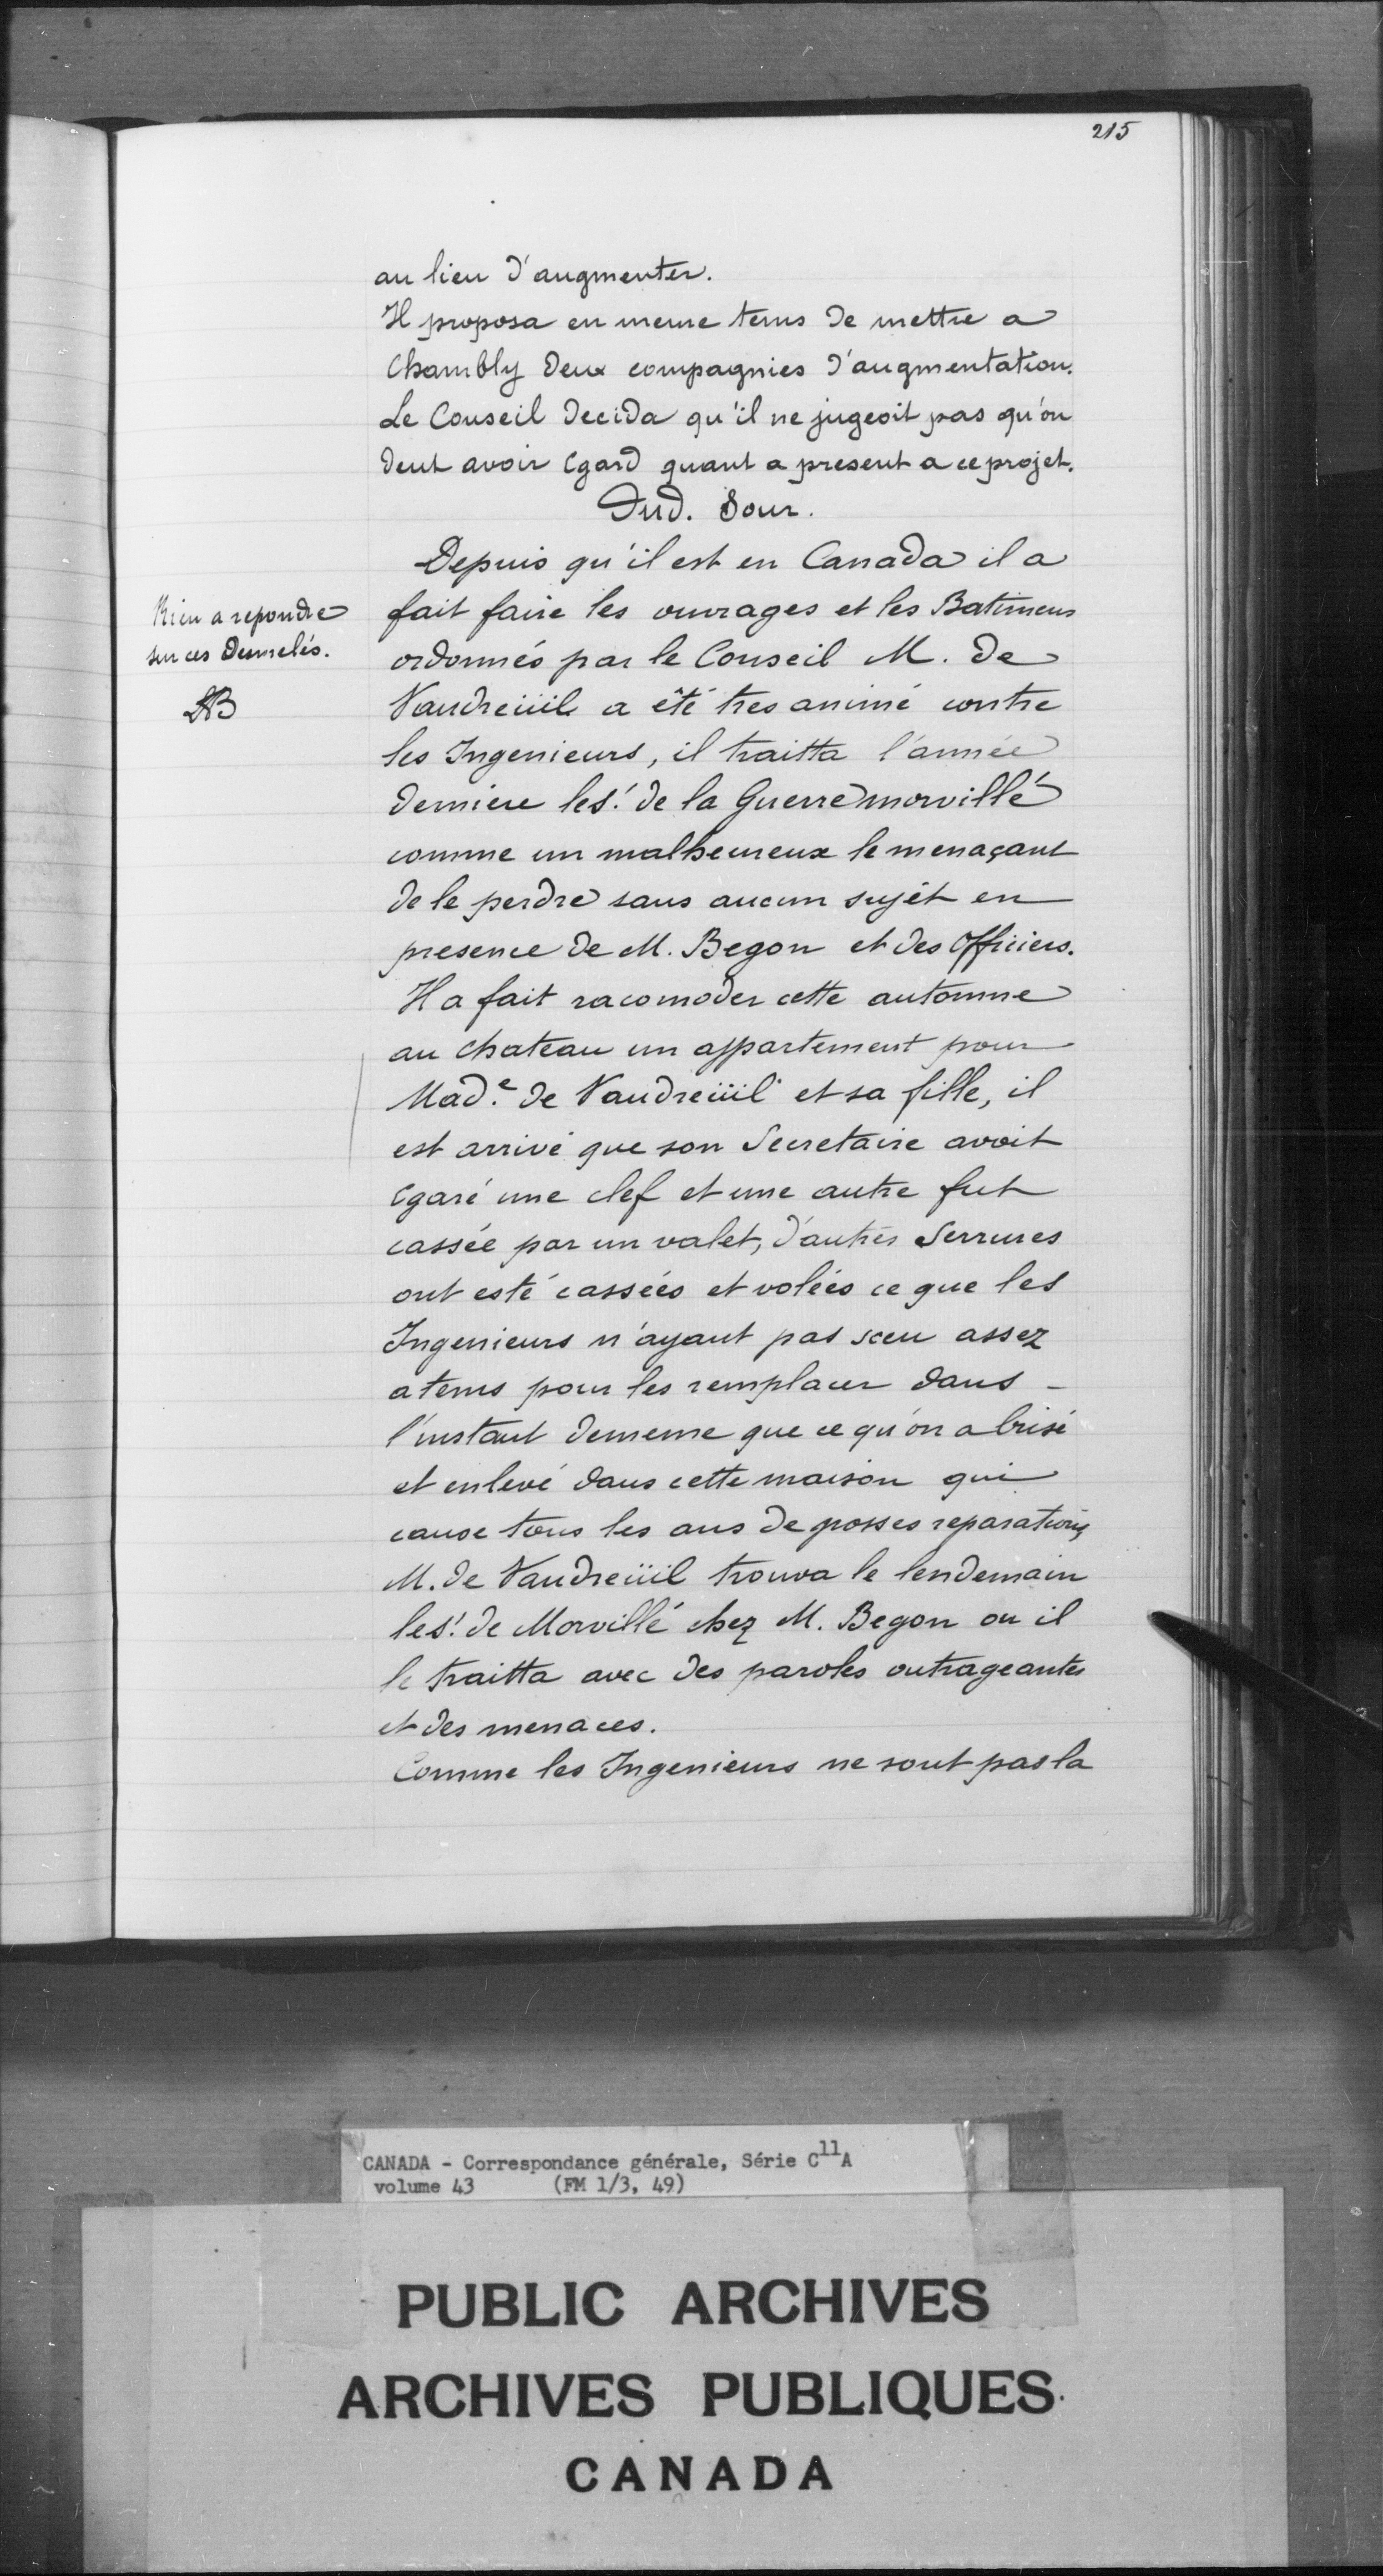 215
au lieu d'augmenter.
Il proposa en meme tems de mettre a
Chambly deux compagnies d'augmentation.
Le Conseil decida qu'il ne jugeoit pas qu'on
deut avoir Egard quant a present a ce projet.
Dud. Jour.
Depuis qu'il est en Canada il a
Rien a repondre
sur ces demelés.
LAB
fait faire les ouvrages et les Batimens
ordonnés par le Conseil M. de
Vaudreüil a été tres animé contre
les Ingenieurs, il traitta l'année
derniere le s.r de la Guerre morvillé
comme un malheureux le menaçant
de le perdre sans aucun sujét en
presence de M. Begon et des Officiers.
Il a fait racomoder cette automne
au chateau un appartement pour
Mad.e de Vaudreüil et sa fille, il
est arrivé que son Secretaire avoit
Egaré une clef et une autre fut
cassée par un valet, d'autres Serrures
ont esté cassées et volées ce que les
Ingenieurs n'ayant pas sceu assez
a tems pour les remplacer dans -
l'instant dememe que ce qu'on a brisé
et enlevé dans cette maison qui
cause tous les ans de grosses reparations
M. de Vaudreüil trouva le lendemain
le s.r de Morvillé chez M. Begon ou il
le traitta avec des paroles outrageantes
et des menaces.
Comme les Ingenieurs ne sont pas la
CANADA - Correspondance générale, Série C11A
volume 43 (FM 1/3, 49)
PUBLIC ARCHIVES
ARCHIVES PUBLIQUES
CANADA